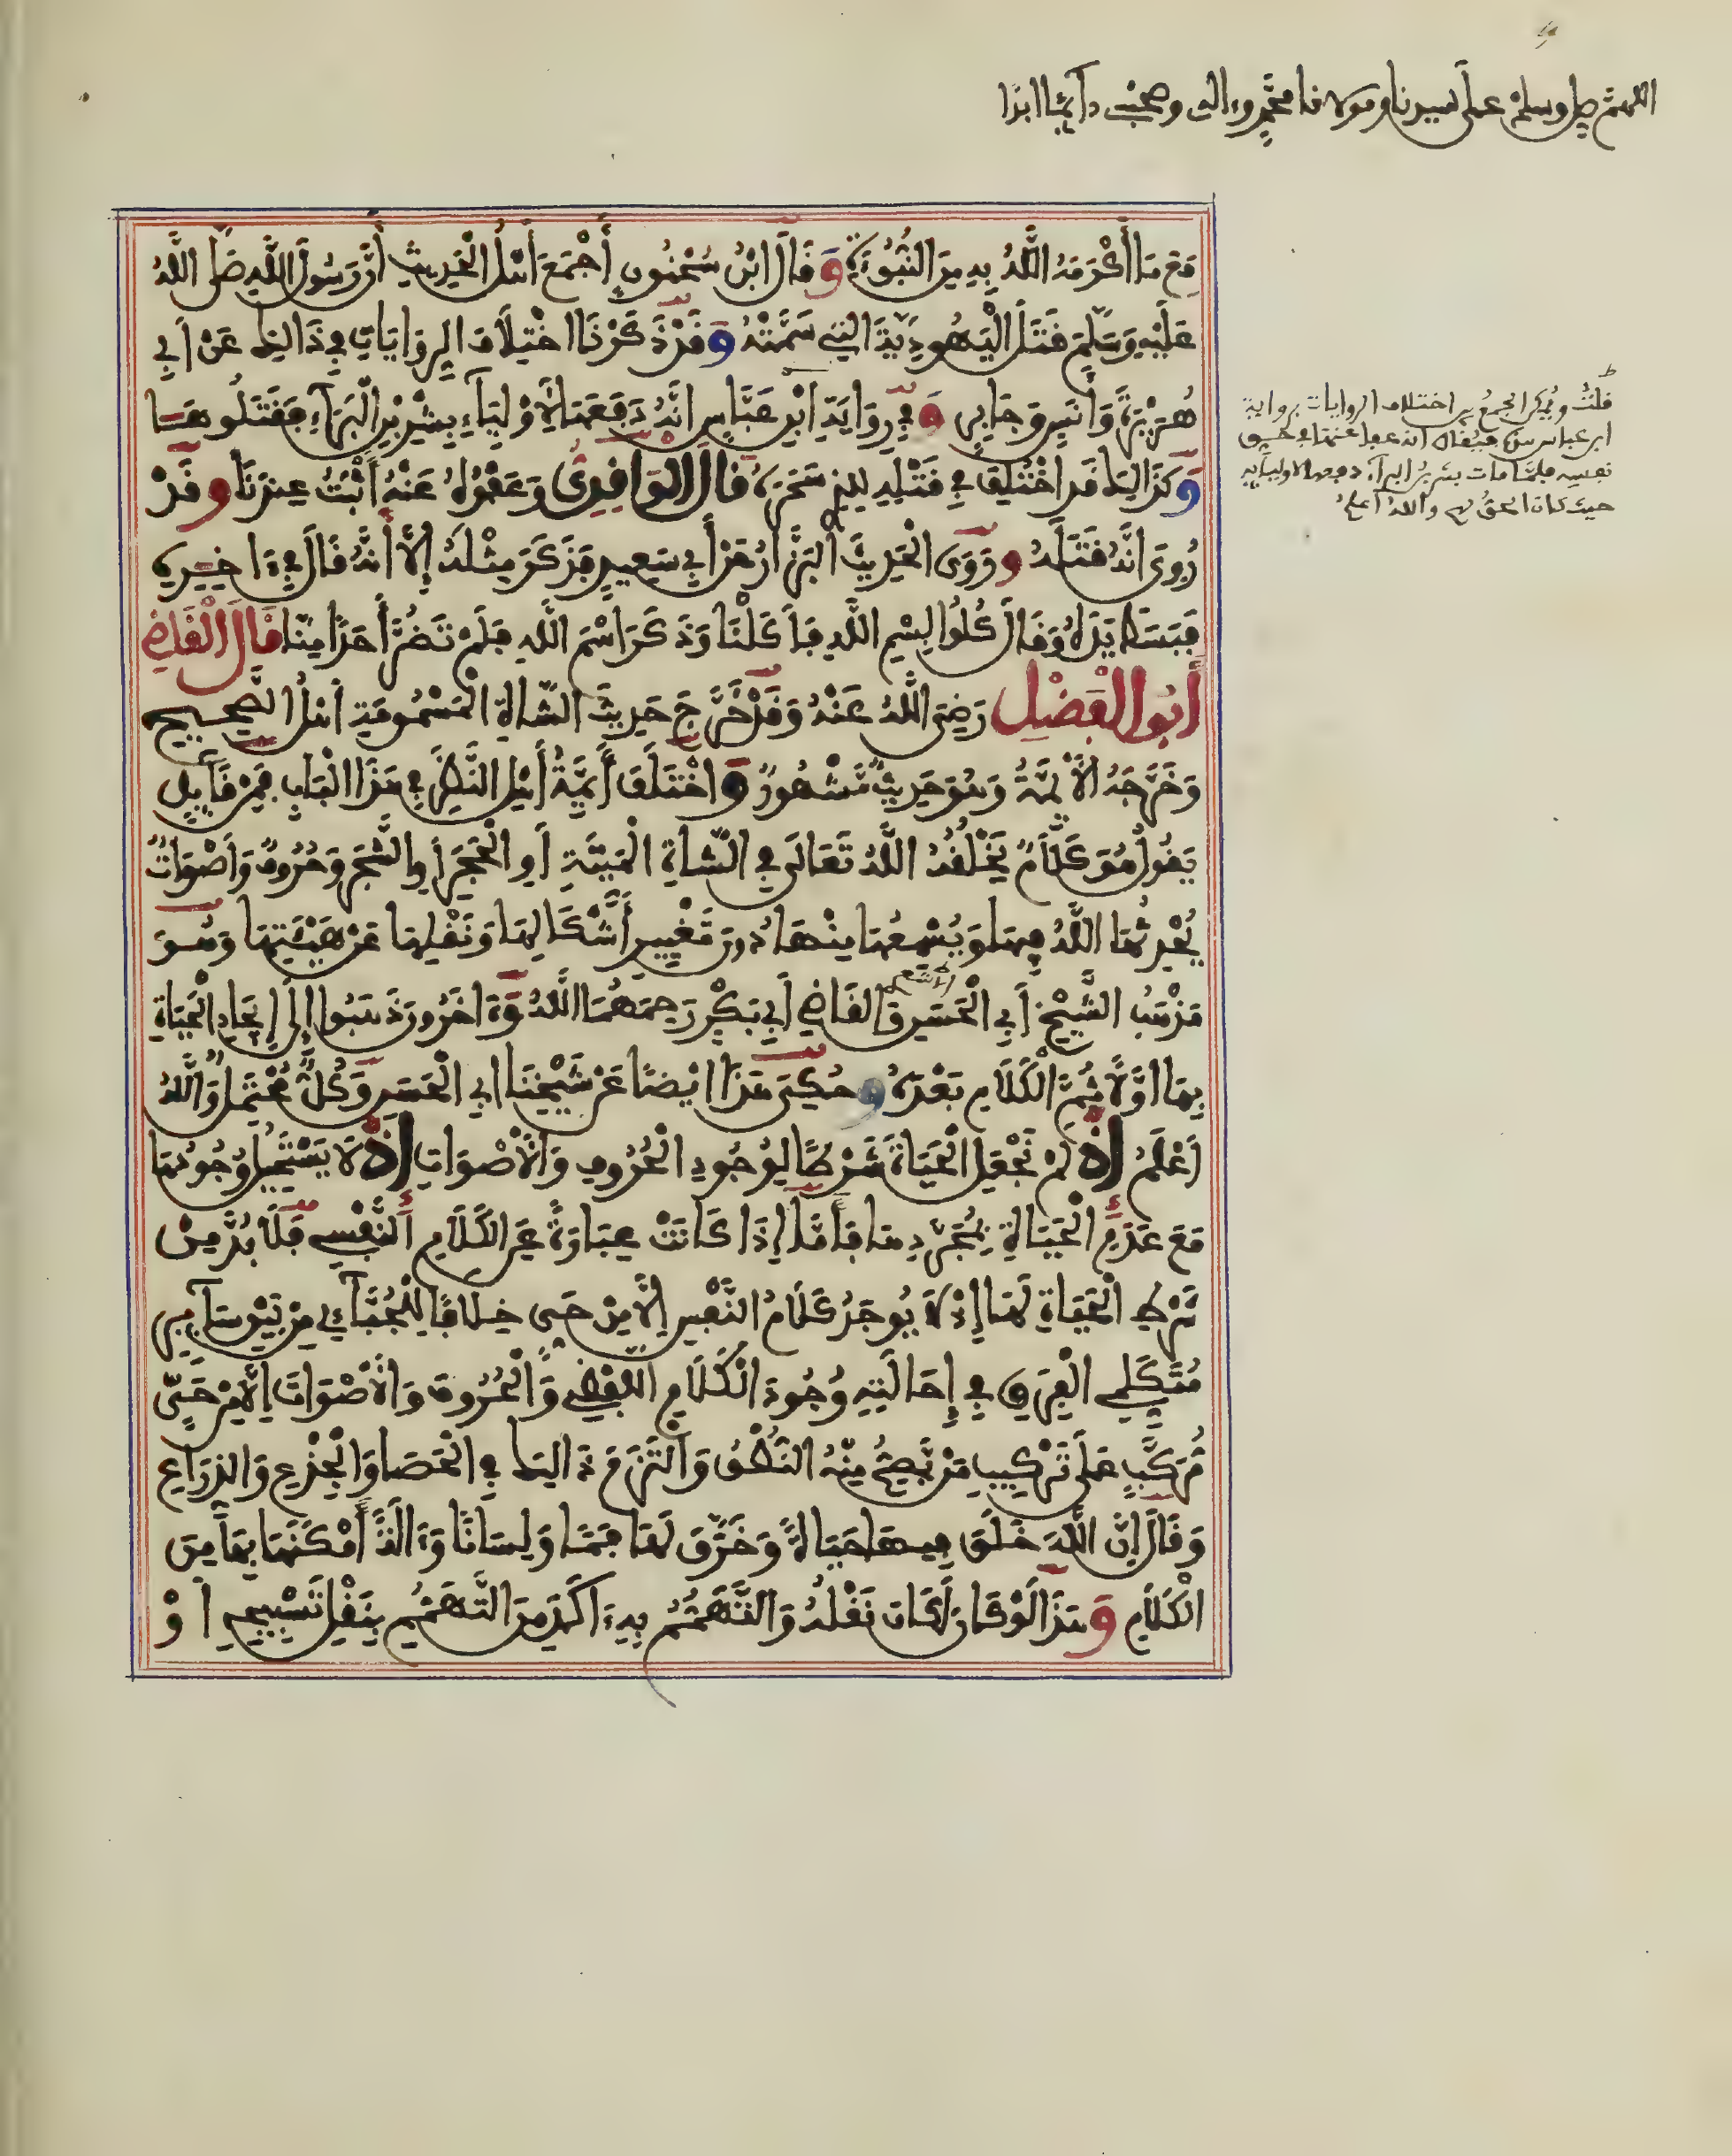 اللهم صل وسلم على سيدنا ومولانا محمد وءاله وصحبه دآئما ابدا
مَعَ مَا أَكْرَمَهُ اللَّهُ بِهِ مِنَ النُّبُوءَةِ وَقَالَ ابْنُ سُحْنُونٍ أَجْمَعَ أَهْلُ الْحَدِيثِ أَنَّ رَسُولَ اللَّهِ صَلَّى اللَّهُ
عَلَيْهِ وَسَلَّمَ قَتَلَ الْيَهُودِيَّةَ التِي سَمَّتْهُ وَقَدْ ذَكَرْنَا اخْتِلَافَ الرِّوَايَاتِ فِي ذَالِكَ عَنْ أَبِي
هُرَيْرَةَ وَأَنَسٍ وَجَابِرٍ وَفِي رِوَايَةِ ابْنِ عَبَّاسٍ انَّهُ دَفَعَهَا لِأَوْلِيَاءِ بِشْرِ بْنِ الْبَرَاءِ فَقَتَلُوهَا
وَكَذَالِكَ قَدِ اخْتُلِفَ فِي قَتْلِهِ لِلذِي سَحَرَهُ قَالَ الْوَاقِدِيُّ وَعَفْوُهُ عَنْهُ أَثْبَتُ عِنْدَنَا وَقَدْ
رُوِيَ انَّهُ قَتَلَهُ وَرَوَى الْحَدِيثَ الْبَزَّارُ عَنْ أَبِي سَعِيدٍ فَذَكَرَ مِثْلَهُ إِلَّا أَنَّهُ قَالَ فِي ءَاخِرِهِ
فَبَسَطَ يَدَهُ وَقَالَ كُلُوا بِسْمِ اللَّهِ فَأَكَلْنَا وَذَكَرَ اسْمَ اللَّهِ فَلَمْ تَضُرَّ أَحَدًا مِنَّا قَالَ الْقَاضِي
أَبُو الْفَضْلِ رَضِيَ اللَّهُ عَنْهُ وَقَدْ خَرَّجَ حَدِيثَ الشَّاةِ الْمَسْمُومَةِ أَهْلُ الصَّحِيحِ
وَخَرَّجَهُ الْأَئِمَّةُ وَهُوَ حَدِيثٌ مَشْهُورٌ وَاخْتَلَفَ أَئِمَّةُ أَهْلِ النَّظَرِ فِي هَذَا الْبَابِ فَمِنْ قَآئِلٍ
يَقُولُ هُوَ كَلَامٌ يَخْلُقُهُ اللَّهُ تَعَالَى فِي الشَّاةِ الْمَيِّتَةِ أَوِ الْحَجَرِ أَوِ الشَّجَرِ وَحُرُوفٌ وَأَصْوَاتٌ
يُحْدِثُهَا اللَّهُ فِيهَا وَيُسْمِعُهَا مِنْهَا دُونَ تَغْيِيرِ أَشْكَالِهَا وَنَقْلِهَا عَنْ هَيْئَتِهَا وَهُوَ
مَذْهَبُ الشَّيْخِ أَبِي الْحَسَنِ الاشعري وَالْقَاضِي أَبِي بَكْرٍ رَحِمَهُمَا اللَّهُ وَءَاخَرُونَ ذَهَبُوا إِلَى إِيجَادِ الْحَيَاةِ
بِهَا اوَّلًا ثُمَّ الْكَلَامِ بَعْدَهُ وَحُكِيَ هَذَا ايْضًا عَنْ شَيْخِنَا ابِي الْحَسَنِ وَكُلٌّ مُحْتَمَلٌ وَاللَّهُ
أَعْلَمُ إِذْ لَمْ نَجْعَلِ الْحَيَاةَ شَرْطًا لِوُجُودِ الْحُرُوفِ وَالْأَصْوَاتِ إِذْ لَا يَسْتَحِيلُ وُجُودُهَا
مَعَ عَدَمِ الْحَيَاةِ بِمُجَرَّدِهَا فَأَمَّا إِذَا كَانَتْ عِبَارَةً عَنِ الْكَلَامِ النَّفْسِي فَلَا بُدَّ مِنْ
شَرْطِ الْحَيَاةِ لَهَا إِذْ لَا يُوجَدُ كَلَامُ النَّفْسِ إِلَّا مِنْ حَيٍّ خِلَافًا لِلْجُبَّآئِي مِنْ بَيْنِ سَآئِرِ
مُتَكَلِّمِي الْفِرَقِ فِي إِحَالَتِهِ وُجُودَ الْكَلَامِ اللَّفْظِي وَالْحُرُوفِ وَالْأَصْوَاتِ إِلَّا مِنْ حَيٍّ
مُرَكَّبٍ عَلَى تَرْكِيبِ مَنْ يَصِحُّ مِنْهُ النُّطْقُ وَالْتَزَمَ ذَالِكَ فِي الْحَصَا وَالْجِذْعِ وَالذِّرَاعِ
وَقَالَ إِنَّ اللَّهَ خَلَقَ فِيهَا حَيَاةً وَخَرَّقَ لَهَا فَمًا وَلِسَانًا وَءَالَةً أَمْكَنَهَا بِهَا مِنَ
الْكَلَامِ وَهَذَا لَوْ كَانَ لَكَانَ نَقْلُهُ وَالتَّهَمُّمُ بِهِ ءَاكَدَ مِنَ التَّهَمُّمِ بِنَقْلِ تَسْبِيحِهِ أَوْ
قلت ويمكن الجمع بين اختلاف الروايات برواية
ابن عباس بان يقال انه عفا عنها في حق
نفسه فلما مات بشر بن البرآء دفعها لاوليآئه
حيث كان الحق لهم والله أعلم